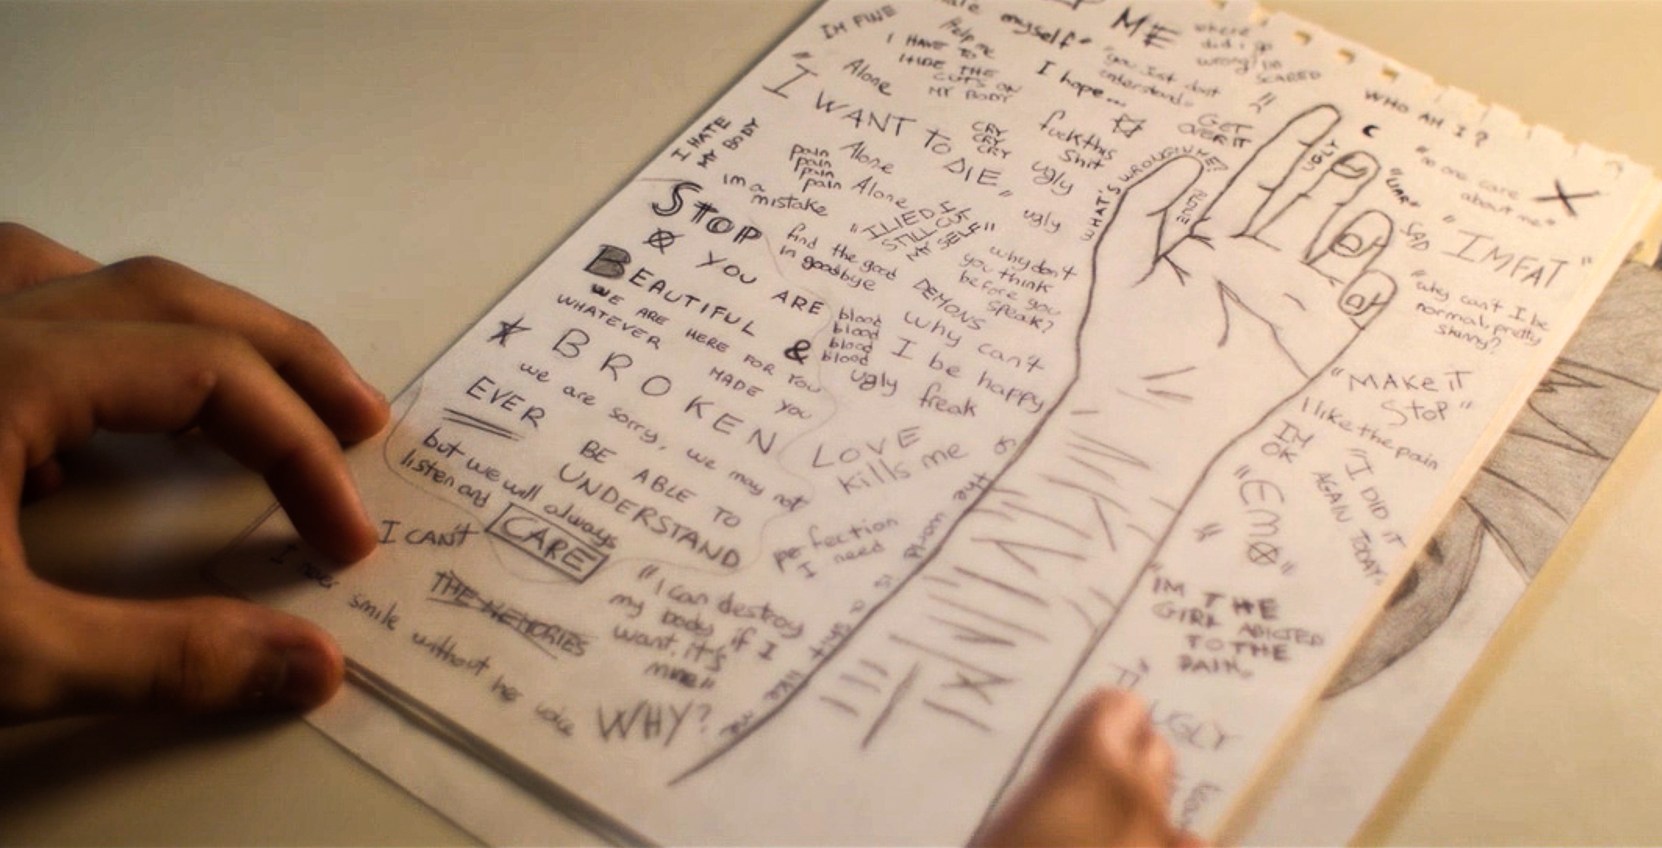 IM FINE
myself"
ME
where
did i go
wrong? im
SCARED
help me
I HAVE TO
HIDE THE
CUTS ON
MY BODY
"you just dont
understand"
I hope...
WHO AM I?
Alone
"I WANT TO DIE"
CRY
CRY
CRY
fuck this
shit
GET
OVER IT
UGLY
"no one care
about me"
I HATE
MY BODY
pain
pain
pain
pain
Alone
Alone
ugly
ugly
WHAT'S WRONG
im a
mistake
"I LIED
STILL CUT
MY SELF"
SAD
"IM FAT"
STOP
find the good
in goodbye
why don't
you think
before you
speak?
"why can't I be
normal, pretty
skinny?
YOU ARE
BEAUTIFUL
DEMONS
blood
blood
blood
blood
why can't
I be happy
WE ARE HERE FOR YOU
WHATEVER MADE YOU
&
ugly freak
"MAKE IT
STOP"
BROKEN
I like the pain
IM
OK
we are sorry, we may not
EVER BE ABLE TO
UNDERSTAND
LOVE
kills me
"I DID IT
AGAIN TODAY"
"EMO"
but we will always
listen and
CARE
perfection
I need
I CAN'T
THE MEMORIES
"I can destroy
my body if I
want, it's
mine"
"IM THE
GIRL ADICTED
TO THE
PAIN"
smile without her voice
WHY?
UGLY